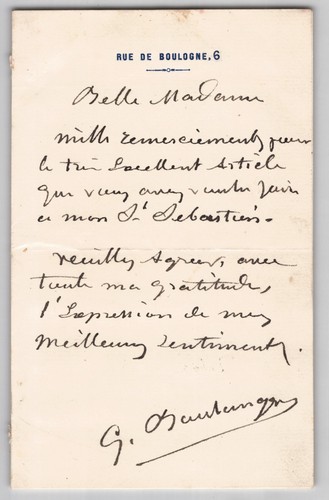 RUE DE BOULOGNE, 6
Belle Madame
mille remerciements pour
le très Excellent Article
que vous avez voulu faire
à mon St Sébastien.
veuillez Agréer, avec
toute ma gratitude,
l'Expression de mes
meilleurs sentiments.
G. Boulanger